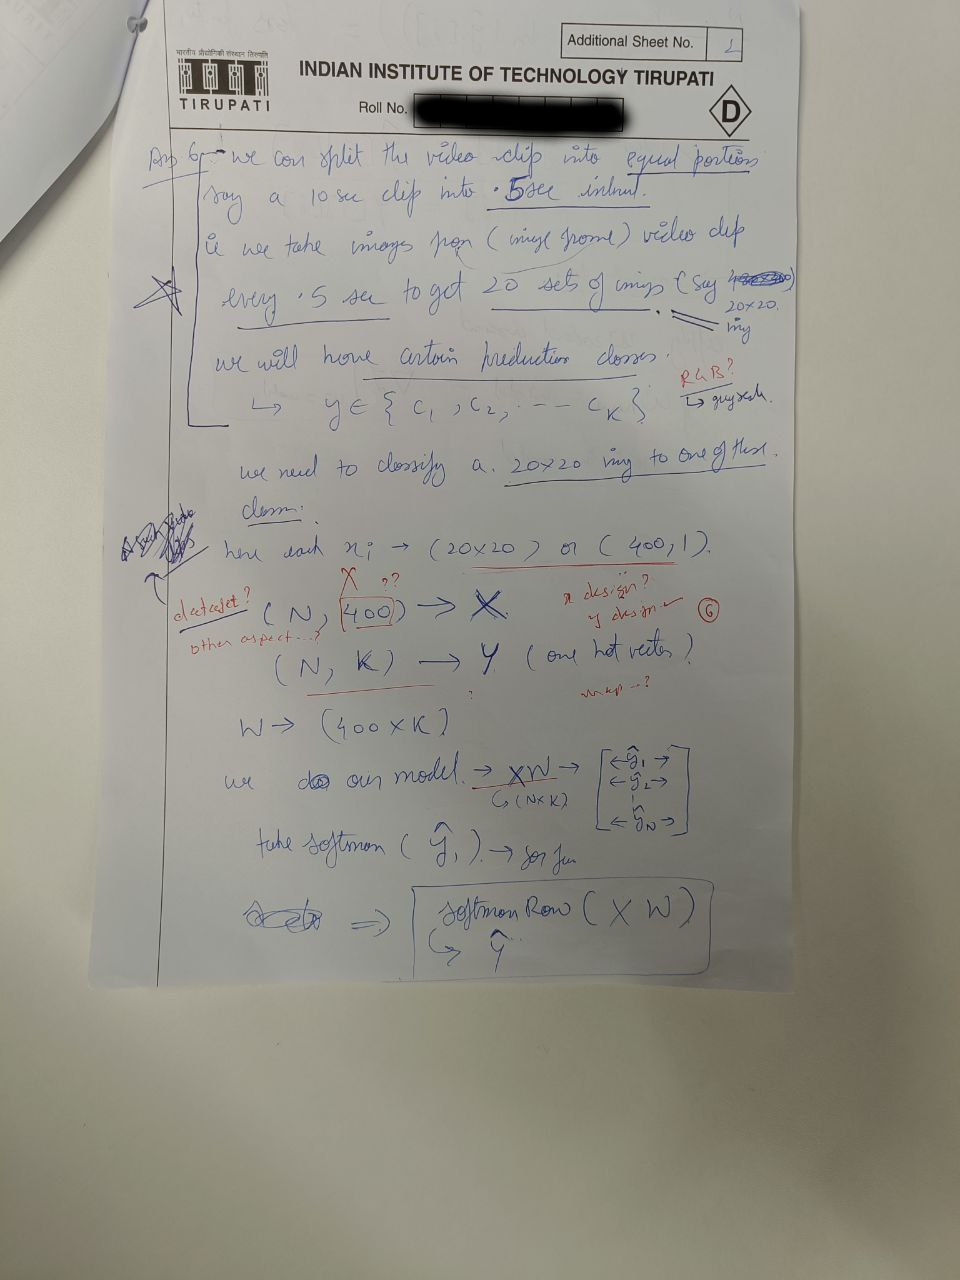 Additional Sheet No. 1
भारतीय प्रौद्योगिकी संस्थान तिरुपति
TIRUPATI
INDIAN INSTITUTE OF TECHNOLOGY TIRUPATI
Roll No.
D
Ans 6 - we can split the video clip into equal portions
say a 10 sec clip into .5 sec
ie we take images from (image frame) video clip
every .5 sec to get 20 sets of imgs (say
20x20.
img
we will have certain prediction classes.
RGB?
↳ y ∈ { C1, C2, --- CK }
↳ grayscale.
we need to classify a 20x20 img to one of these
classes.
here each xi → (20x20) or (400,1).
X ??
x design?
dataset? (N, 400) → X
y design ✓
6
other aspect...?
(N, K) → Y (one hot vector)
?
map --?
W → (400 x K)
we do our model → XW → [ ←ŷ1→
↳ (NxK)
←ŷ2→
←ŷN→ ]
take softmax (ŷ1) →
⇒ softmax Row (XW)
↳ Ŷ